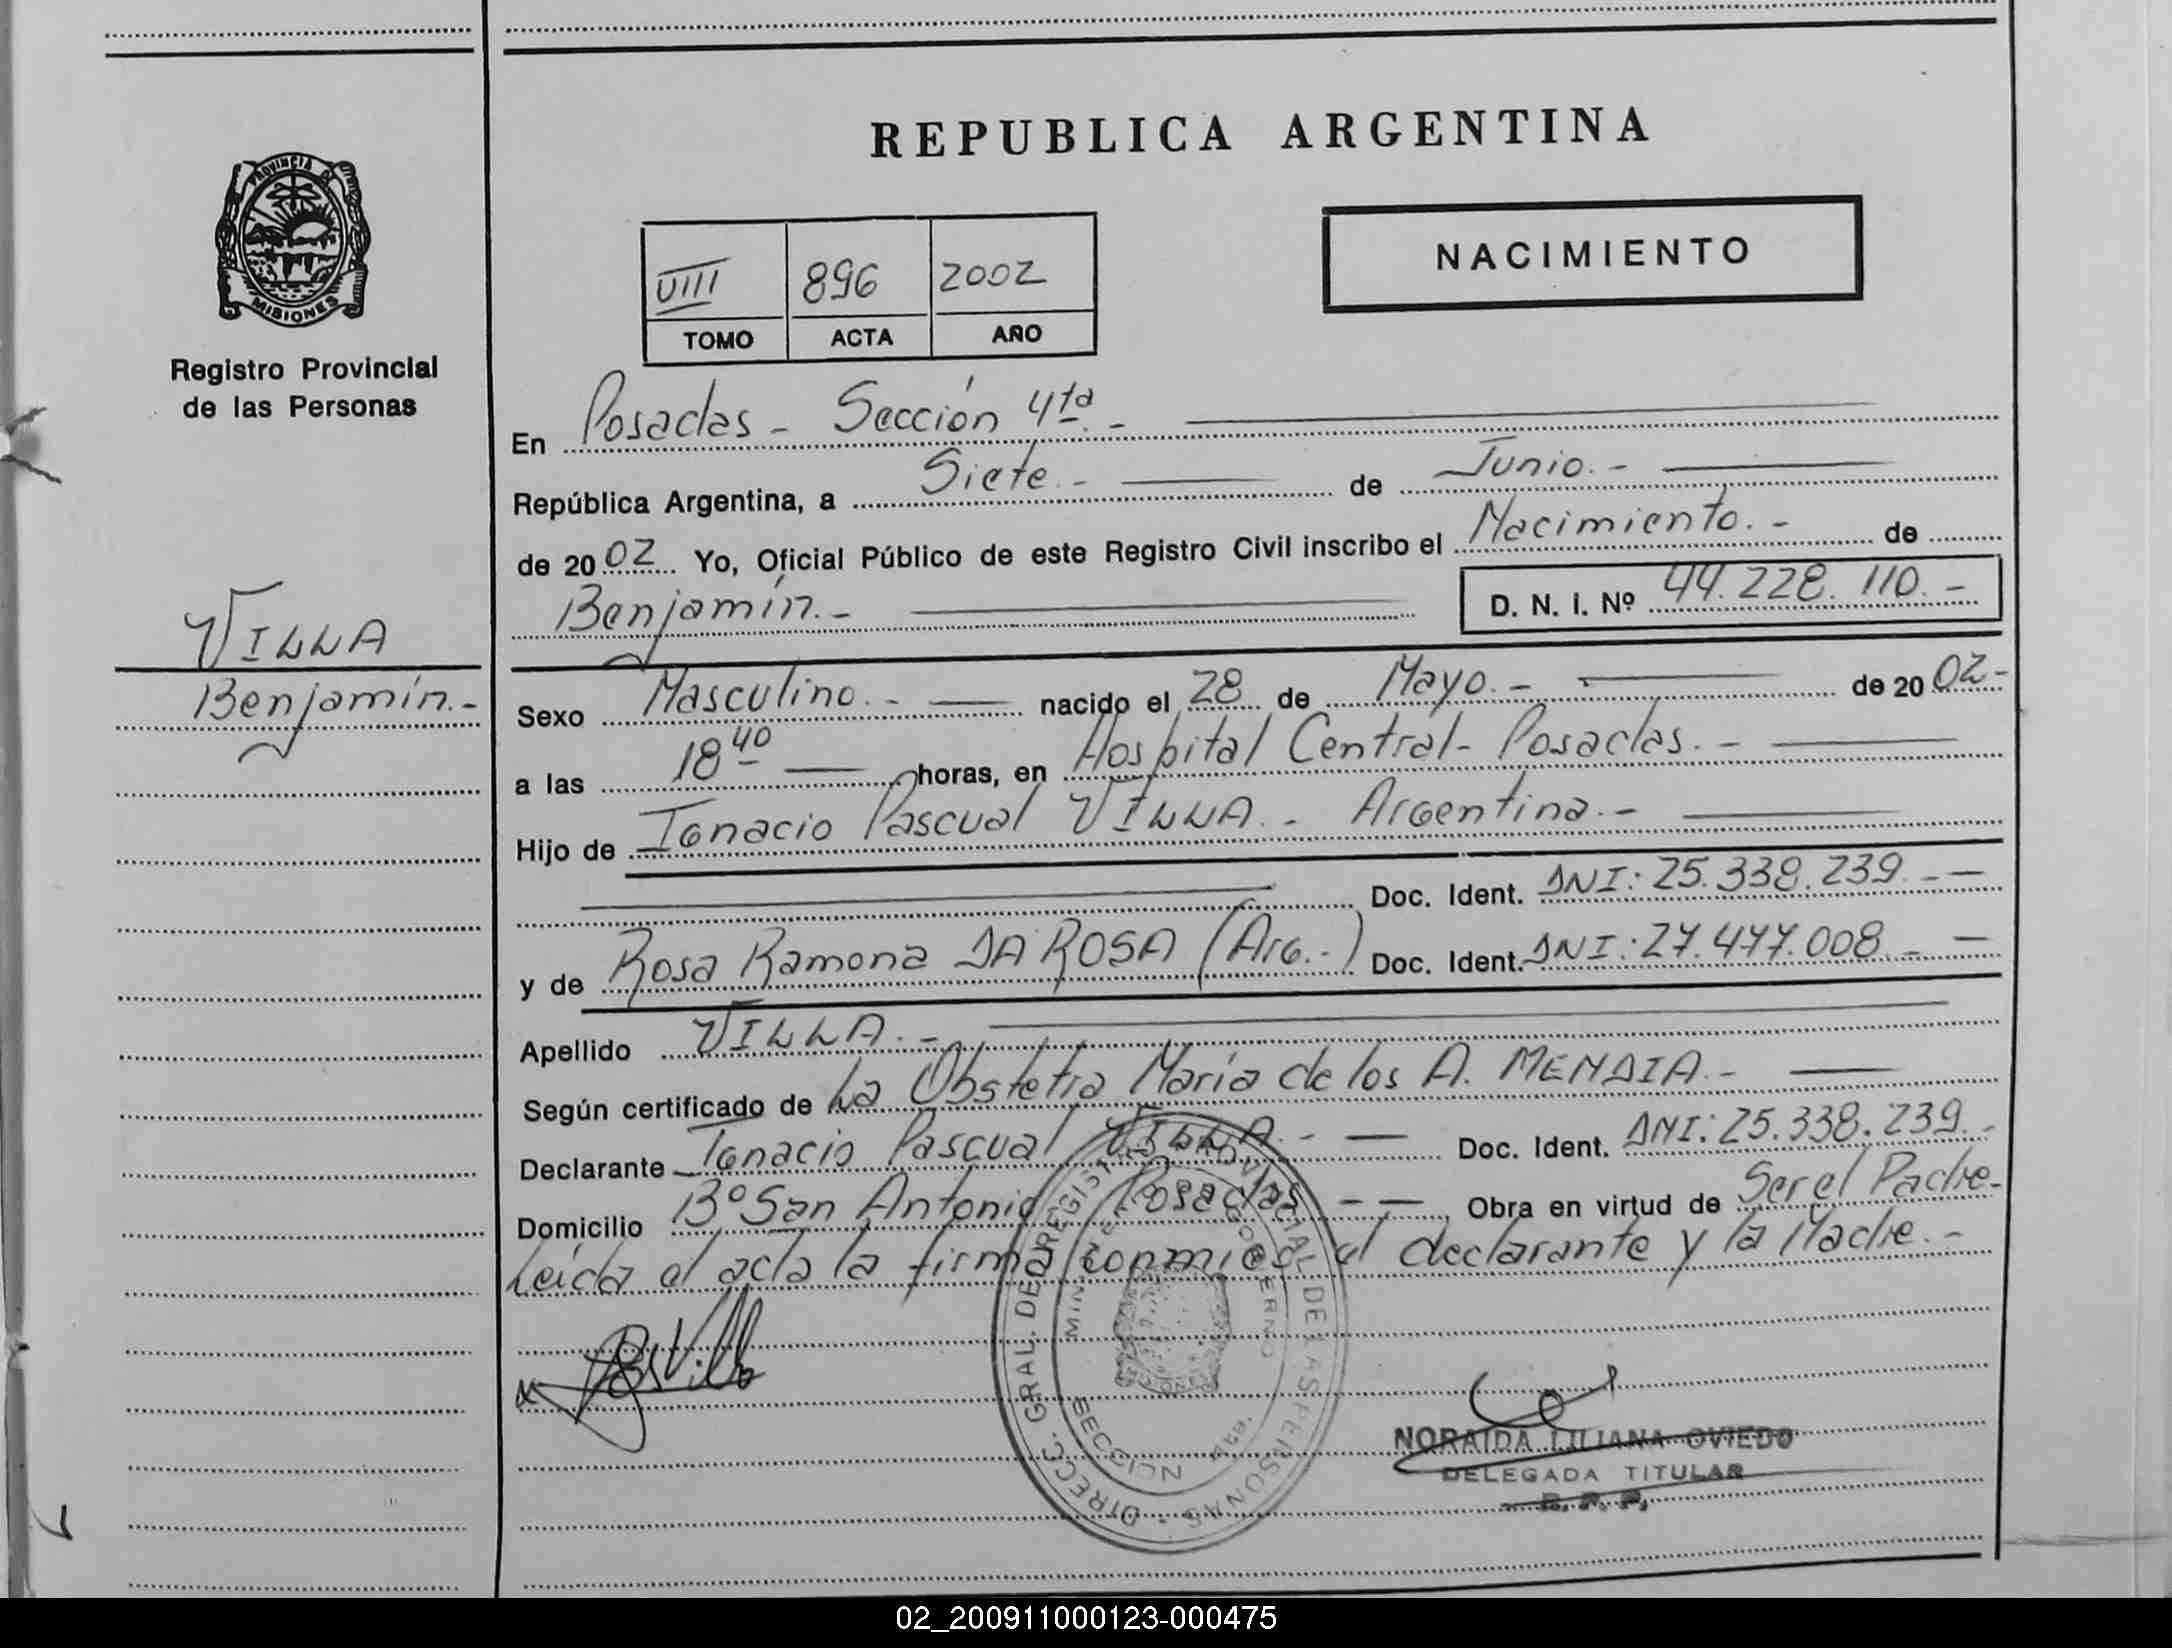 REPUBLICA ARGENTINA
PROVINCIA DE
MISIONES
Registro Provincial
de las Personas
NACIMIENTO
VIII 896 2002
TOMO ACTA AÑO
En Posadas - Sección 4ta. -
República Argentina, a Siete. - de Junio. -
de 2002 Yo, Oficial Público de este Registro Civil inscribo el Nacimiento. - de
Benjamín. - D. N. I. Nº 44.228.110. -
VILLA
Benjamín. -
Sexo Masculino. - nacido el 28 de Mayo. - de 2002-
a las 18 40 horas, en Hospital Central - Posadas. -
Hijo de Ignacio Pascual VILLA. - Argentina. -
Doc. Ident. DNI: 25.338.239. -
y de Rosa Ramona DA ROSA (Arg. -) Doc. Ident. DNI: 27.477.008. -
Apellido VILLA. -
Según certificado de La Obstetra María de los A. MENDIA. -
Declarante Ignacio Pascual VILLA. - Doc. Ident. DNI: 25.338.239. -
Domicilio Bº San Antonio Posadas - Obra en virtud de Ser el Padre-
Leída el acta la firma conmigo el declarante y la Madre. -
DIRECC. GRAL. DEL REGISTRO PROVINCIAL DE LAS PERSONAS
MIN. DE GOBIERNO
SECCION 4ta.
NORAIDA LILIANA OVIEDO
DELEGADA TITULAR
R. P. P.
02_200911000123-000475